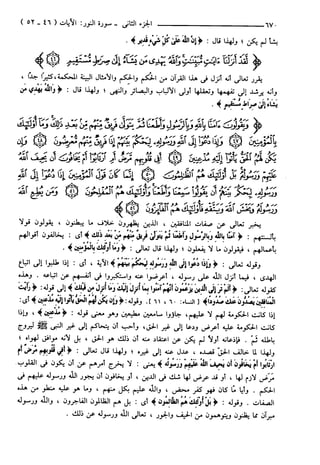 ٦٧٠ الجزء الثاني - سورة النور: الآيات ( ٤٦ - ٥٢ )
يشأ لم يكن ؛ ولهذا قال : ﴿ إِنَّ اللَّهَ عَلَىٰ كُلِّ شَيْءٍ قَدِيرٌ ﴾ .
﴿ لَّقَدْ أَنزَلْنَا آيَاتٍ مُّبَيِّنَاتٍ وَاللَّهُ يَهْدِي مَن يَشَاءُ إِلَىٰ صِرَاطٍ مُّسْتَقِيمٍ ﴾
يقرر تعالى أنه أنزل في هذا القرآن من الحكم والحكم والأمثال البينة المحكمة، كثيراً جداً ،
وأنه يرشد إلى تفهمها وتعقلها أولي الألباب والبصائر والنهى ؛ ولهذا قال : ﴿ وَاللَّهُ يَهْدِي مَن
يَشَاءُ إِلَىٰ صِرَاطٍ مُّسْتَقِيمٍ ﴾ .
﴿ وَيَقُولُونَ آمَنَّا بِاللَّهِ وَبِالرَّسُولِ وَأَطَعْنَا ثُمَّ يَتَوَلَّىٰ فَرِيقٌ مِّنْهُم مِّن بَعْدِ ذَٰلِكَ وَمَا أُولَٰئِكَ
بِالْمُؤْمِنِينَ وَإِذَا دُعُوا إِلَى اللَّهِ وَرَسُولِهِ لِيَحْكُمَ بَيْنَهُمْ إِذَا فَرِيقٌ مِّنْهُم مُّعْرِضُونَ وَإِن
يَكُن لَّهُمُ الْحَقُّ يَأْتُوا إِلَيْهِ مُذْعِنِينَ أَفِي قُلُوبِهِم مَّرَضٌ أَمِ ارْتَابُوا أَمْ يَخَافُونَ أَن يَحِيفَ اللَّهُ
عَلَيْهِمْ وَرَسُولُهُ بَلْ أُولَٰئِكَ هُمُ الظَّالِمُونَ إِنَّمَا كَانَ قَوْلَ الْمُؤْمِنِينَ إِذَا دُعُوا إِلَى اللَّهِ
وَرَسُولِهِ لِيَحْكُمَ بَيْنَهُمْ أَن يَقُولُوا سَمِعْنَا وَأَطَعْنَا وَأُولَٰئِكَ هُمُ الْمُفْلِحُونَ وَمَن يُطِعِ اللَّهَ
وَرَسُولَهُ وَيَخْشَ اللَّهَ وَيَتَّقْهِ فَأُولَٰئِكَ هُمُ الْفَائِزُونَ ﴾
يخبر تعالى عن صفات المنافقين ، الذين يظهرون خلاف ما يبطنون ، يقولون قولا
بألسنتهم : ﴿ آمَنَّا بِاللَّهِ وَبِالرَّسُولِ وَأَطَعْنَا ثُمَّ يَتَوَلَّىٰ فَرِيقٌ مِّنْهُم مِّن بَعْدِ ذَٰلِكَ ﴾ أي : يخالفون أقوالهم
بأعمالهم ، فيقولون ما لا يفعلون ؛ ولهذا قال تعالى : ﴿ وَمَا أُولَٰئِكَ بِالْمُؤْمِنِينَ ﴾ .
وقوله تعالى : ﴿ وَإِذَا دُعُوا إِلَى اللَّهِ وَرَسُولِهِ لِيَحْكُمَ بَيْنَهُمْ ﴾ الآية ، أي : إذا طلبوا إلى اتباع
الهدى ، فيما أنزل الله على رسوله ، أعرضوا عنه واستكبروا في أنفسهم عن اتباعه . وهذه
كقوله تعالى: ﴿ أَلَمْ تَرَ إِلَى الَّذِينَ يَزْعُمُونَ أَنَّهُمْ آمَنُوا بِمَا أُنزِلَ إِلَيْكَ وَمَا أُنزِلَ مِن قَبْلِكَ ﴾ إلى قوله: ﴿ رَأَيْتَ
الْمُنَافِقِينَ يَصُدُّونَ عَنكَ صُدُودًا ﴾ [النساء: ٦٠ ، ٦١]. وقوله: ﴿ وَإِن يَكُن لَّهُمُ الْحَقُّ يَأْتُوا إِلَيْهِ مُذْعِنِينَ ﴾ أي:
إذا كانت الحكومة لهم لا عليهم، جاؤوا سامعين مطيعين وهو معنى قوله : ﴿ مُذْعِنِينَ ﴾ ، وإذا
كانت الحكومة عليه أعرض ودعا إلى غير الحق، وأحب أن يتحاكم إلى غير النبي ﷺ ليروج
باطله ثَمّ . فإذعانه أولاً لم يكن عن اعتقاد منه أن ذلك هو الحق ، بل لأنه موافق لهواه ؛
ولهذا لما خالف الحق قصده ، عدل عنه إلى غيره ؛ ولهذا قال تعالى : ﴿ أَفِي قُلُوبِهِم مَّرَضٌ أَمِ
ارْتَابُوا أَمْ يَخَافُونَ أَن يَحِيفَ اللَّهُ عَلَيْهِمْ وَرَسُولُهُ ﴾ يعني : لا يخرج أمرهم عن أن يكون في القلوب
مرض لازم لها ، أو قد عرض لها شك في الدين ، أو يخافون أن يجور الله ورسوله عليهم في
الحكم . وأيا ما كان فهو كفر محض ، والله عليم بكل منهم ، وما هو عليه منطو من هذه
الصفات . وقوله : ﴿ بَلْ أُولَٰئِكَ هُمُ الظَّالِمُونَ ﴾ أي : بل هم الظالمون الفاجرون ، والله ورسوله
مبرآن مما يظنون ويتوهمون من الحيف والجور ، تعالى الله ورسوله عن ذلك .